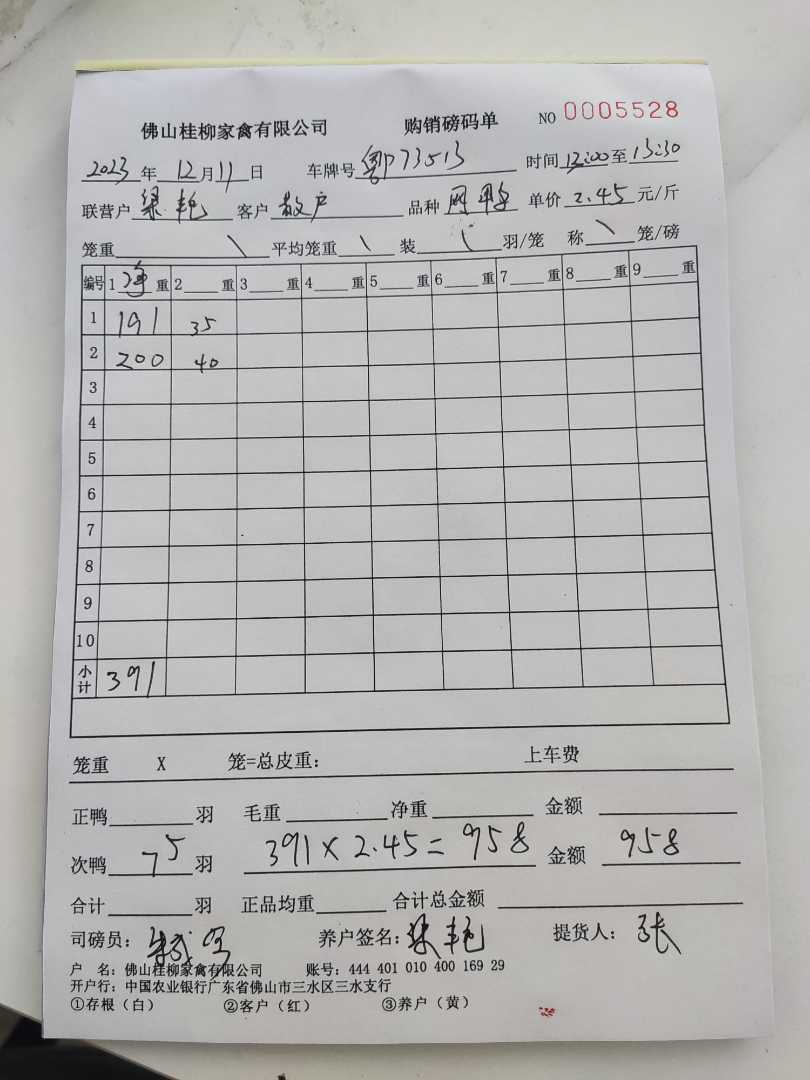 佛山桂柳家禽有限公司 购销磅码单 NO 0005528
2023 年 12 月 11 日 车牌号 粤P73513 时间 12:00 至 13:30
联营户 梁艳 客户 散户 品种 单价 2.45 元/斤
笼重 \ 平均笼重 \ 装 \ 羽/笼 称 \ 笼/磅
编号 1 净 重 2 重 3 重 4 重 5 重 6 重 7 重 8 重 9 重
1 191 35
2 200 40
3
4
5
6
7
8
9
10
小计 391
笼重 X 笼=总皮重: 上车费
正鸭 羽 毛重 净重 金额
次鸭 75 羽 391 x 2.45 = 958 金额 958
合计 羽 正品均重 合计总金额
司磅员: 养户签名: 梁艳 提货人: 张
户 名: 佛山桂柳家禽有限公司 账号: 444 401 010 400 169 29
开户行: 中国农业银行广东省佛山市三水区三水支行
①存根(白) ②客户(红) ③养户(黄)